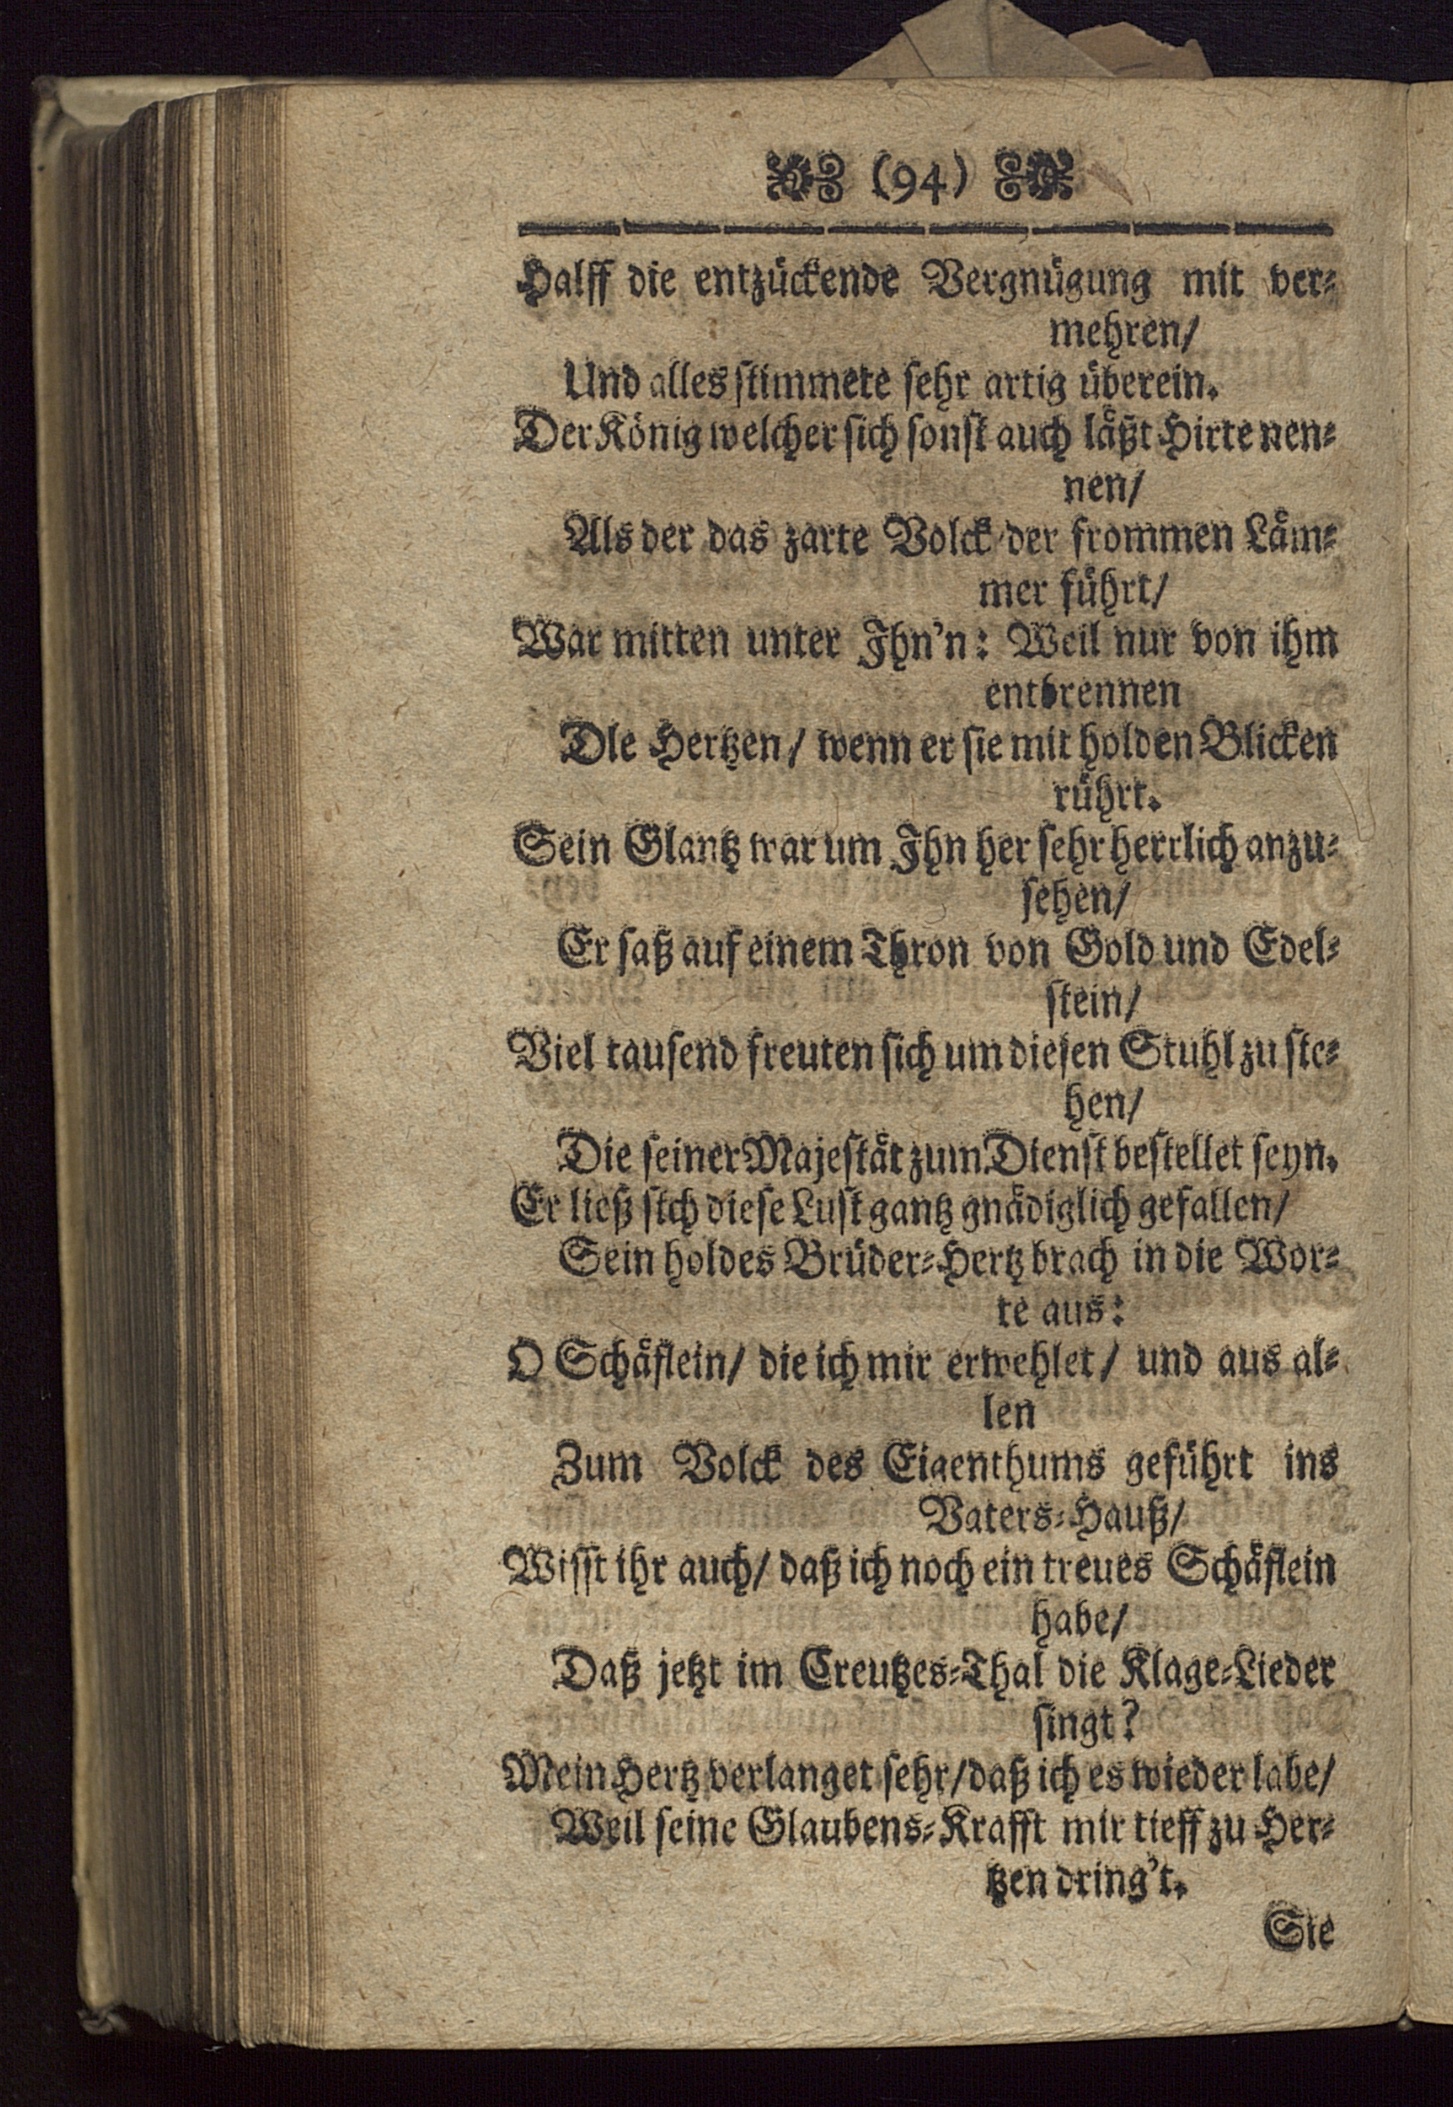 (94)
Halff die entzückende Vergnügung mit ver⸗
mehren/
Und alles stimmete sehr artig überein.
Der König welcher sich sonst auch läßt Hirte nen⸗
nen/
Als der das zarte Volck der frommen Läm⸗
mer führt/
War mitten unter Ihn'n: Weil nur von ihm
entbrennen
Dle Hertzen/ wenn er sie mit holden Blicken
rührt.
Sein Glantz war um Ihn her sehr herrlich anzu⸗
sehen/
Er saß auf einem Thron von Gold und Edel⸗
stein/
Viel tausend freuten sich um diesen Stuhl zu ste⸗
hen/
Die seiner Majestät zum Dienst bestellet seyn.
Er ließ sich diese Lust gantz gnädiglich gefallen/
Sein holdes Brüder⸗Hertz brach in die Wor⸗
te aus:
O Schäflein/ die ich mir erwehlet/ und aus al⸗
len
Zum Volck des Eigenthums geführt ins
Vaters⸗Hauß/
Wisst ihr auch/ daß ich noch ein treues Schäflein
habe/
Daß jetzt im Creutzes⸗Thal die Klage⸗Lieder
singt?
Mein Hertz verlanget sehr/ daß ich es wieder labe/
Weil seine Glaubens⸗Krafft mir tieff zu Her⸗
tzen dring't.
Sie